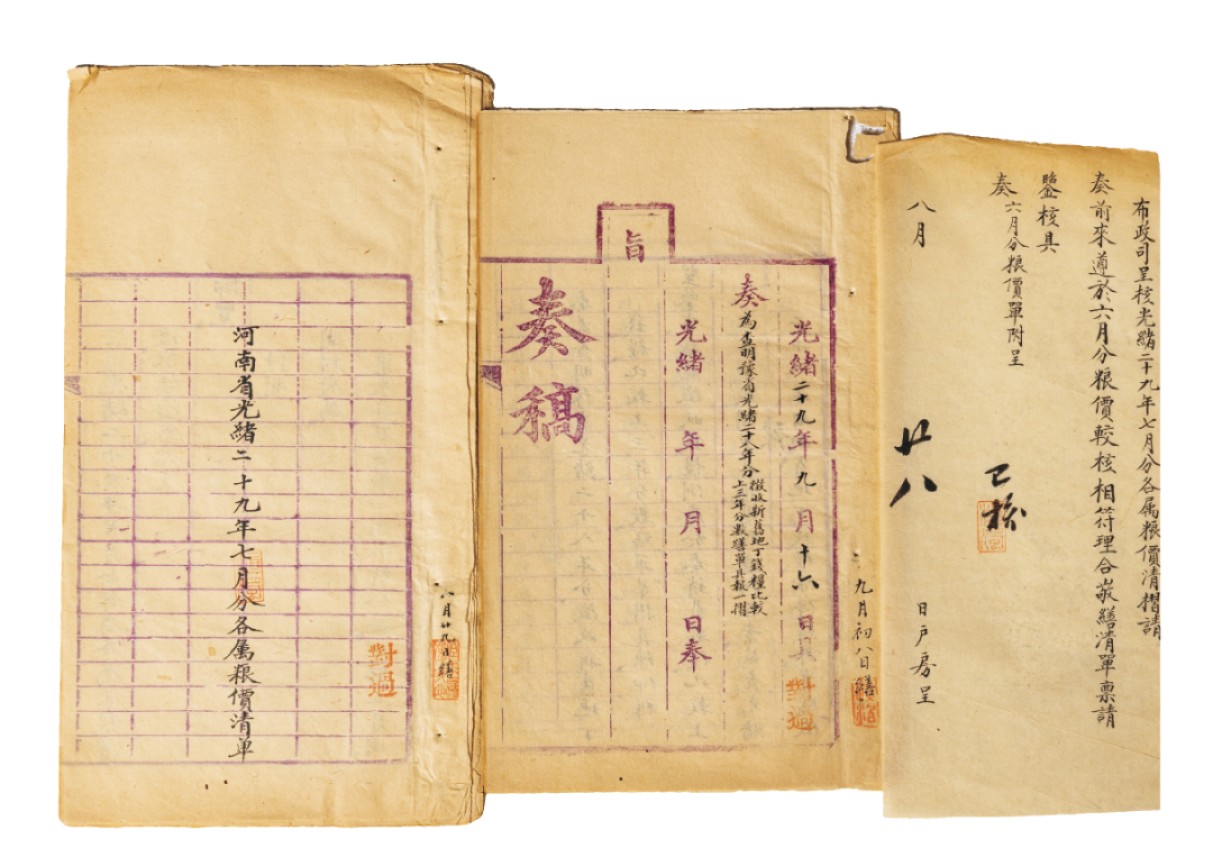 布政司呈核光緒二十九年七月分各属粮價清摺請
奏前來遵於六月分粮價較核相符理合敬繕清單禀請
鑒核具
奏六月分粮價單附呈
已核
八月
廿八
日戸房呈
九月初八日繕
光緒二十九年九月十六日具
對過
奏為查明豫省光緒二十八年分徵收新舊地丁錢糧比較
上三年分数繕單具報一摺
旨
光緒 年 月 日奉
奏稿
八月廿九日繕
對過
河南省光緒二十九年七月分各属粮價清单